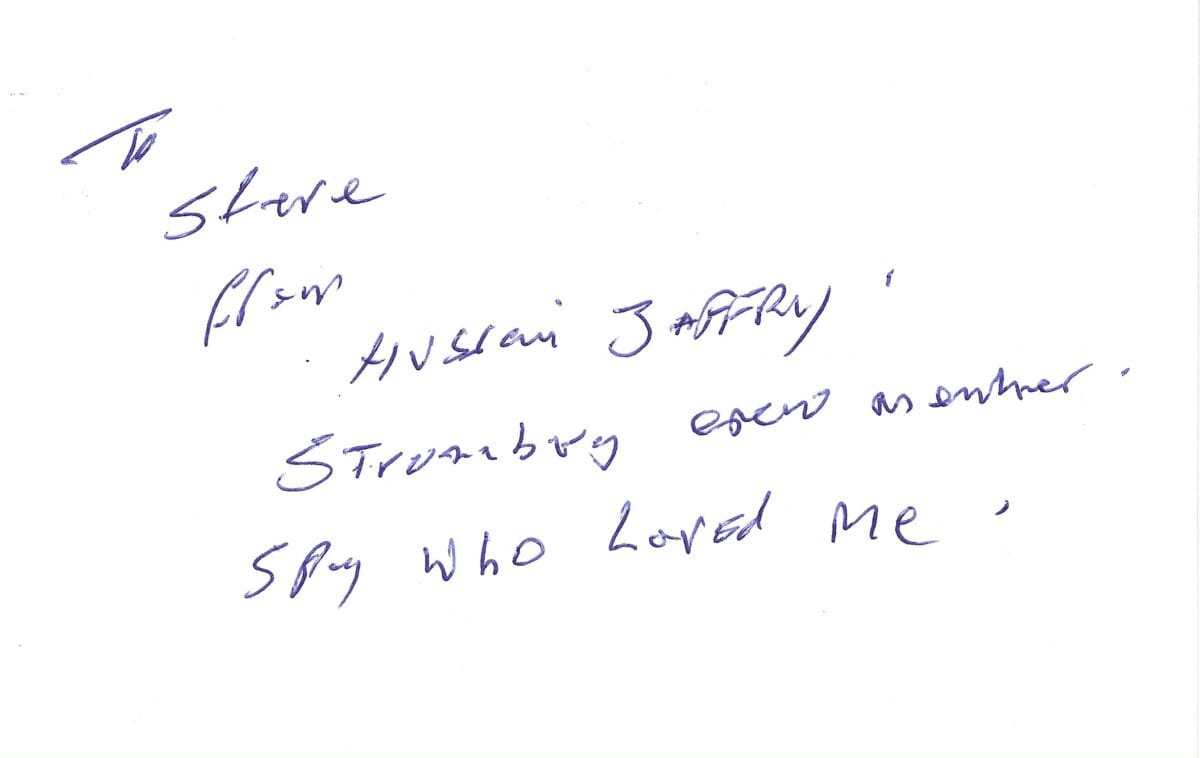 To
Steve
from
Hussain JAFFRY.
Stromberg crew member.
Spy Who Loved Me.